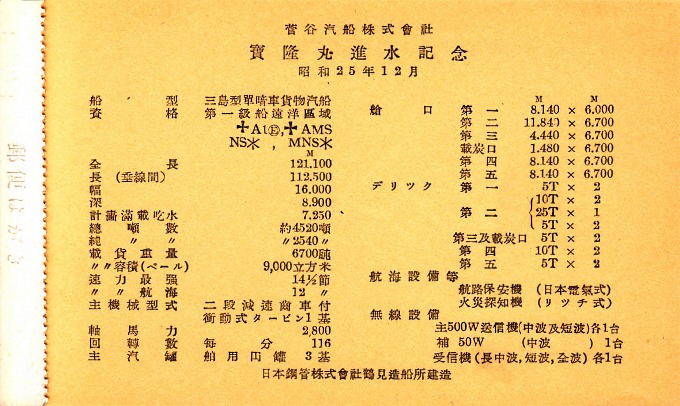 菅谷汽船株式會社
寶隆丸進水記念
昭和25年12月
船型 三島型單暗車貨物汽船
資格 第一級船遠洋區域
✠A1Ⓔ, ✠AMS
NS*, MNS*
M
全長 121.100
長(垂線間) 112.500
幅 16.000
深 8.900
計畫滿載吃水 7.250
總噸數 約4520噸
純〃〃 〃2540〃
載貨重量 6700瓲
〃〃容積(ベール) 9,000立方米
速力最强 14½節
〃〃航海 12〃
主機械型式 二段減速齒車付
衝動式タービン1基
軸馬力 2,800
回轉數 每分 116
主汽罐 舶用円罐 3基
M M
艙口 第一 8.140 × 6.000
第二 11.840 × 6.700
第三 4.440 × 6.700
載炭口 1.480 × 6.700
第四 8.140 × 6.700
第五 8.140 × 6.700
デリック 第一 5T × 2
第二 10T × 2
25T × 1
5T × 2
第三及載炭口 5T × 2
第四 10T × 2
第五 5T × 2
航海設備等
航路保安機 (日本電氣式)
火災探知機 (リッチ式)
無線設備
主500W送信機(中波及短波)各1台
補50W (中波) 1台
受信機(長中波,短波,全波)各1台
日本鋼管株式會社鶴見造船所建造
郵便はがき